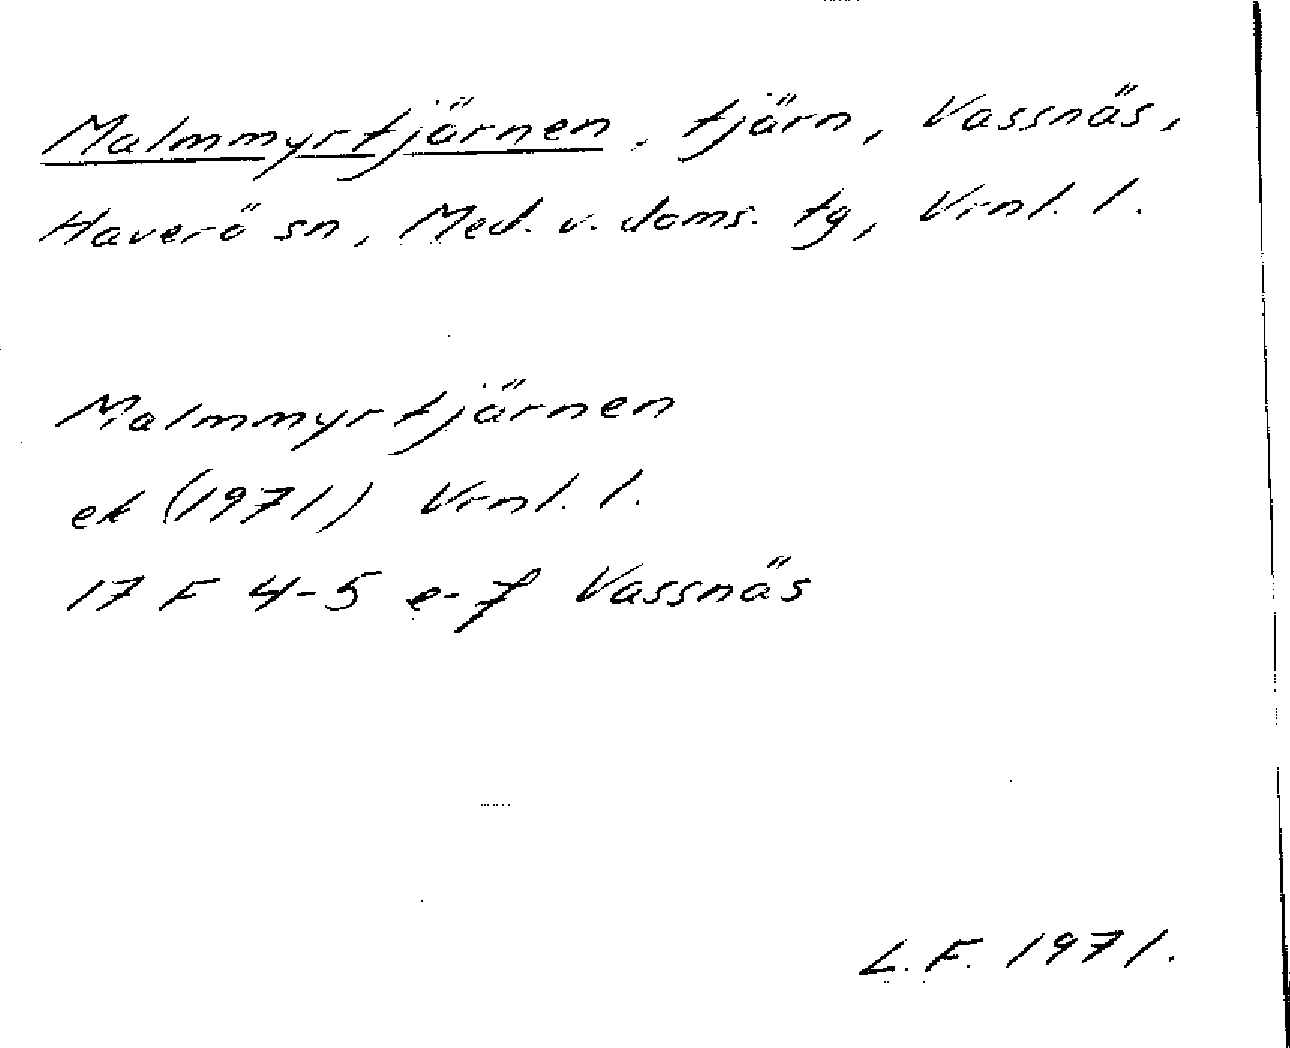 Malmmyrtjärnen, tjärn, Vassnäs,
Haverö sn, Med. v. doms. tg, Vrnl. l.
Malmmyrtjärnen
ek (1971) Vrnl. l.
17 F 4-5 e-f Vassnäs
L.F. 1971.